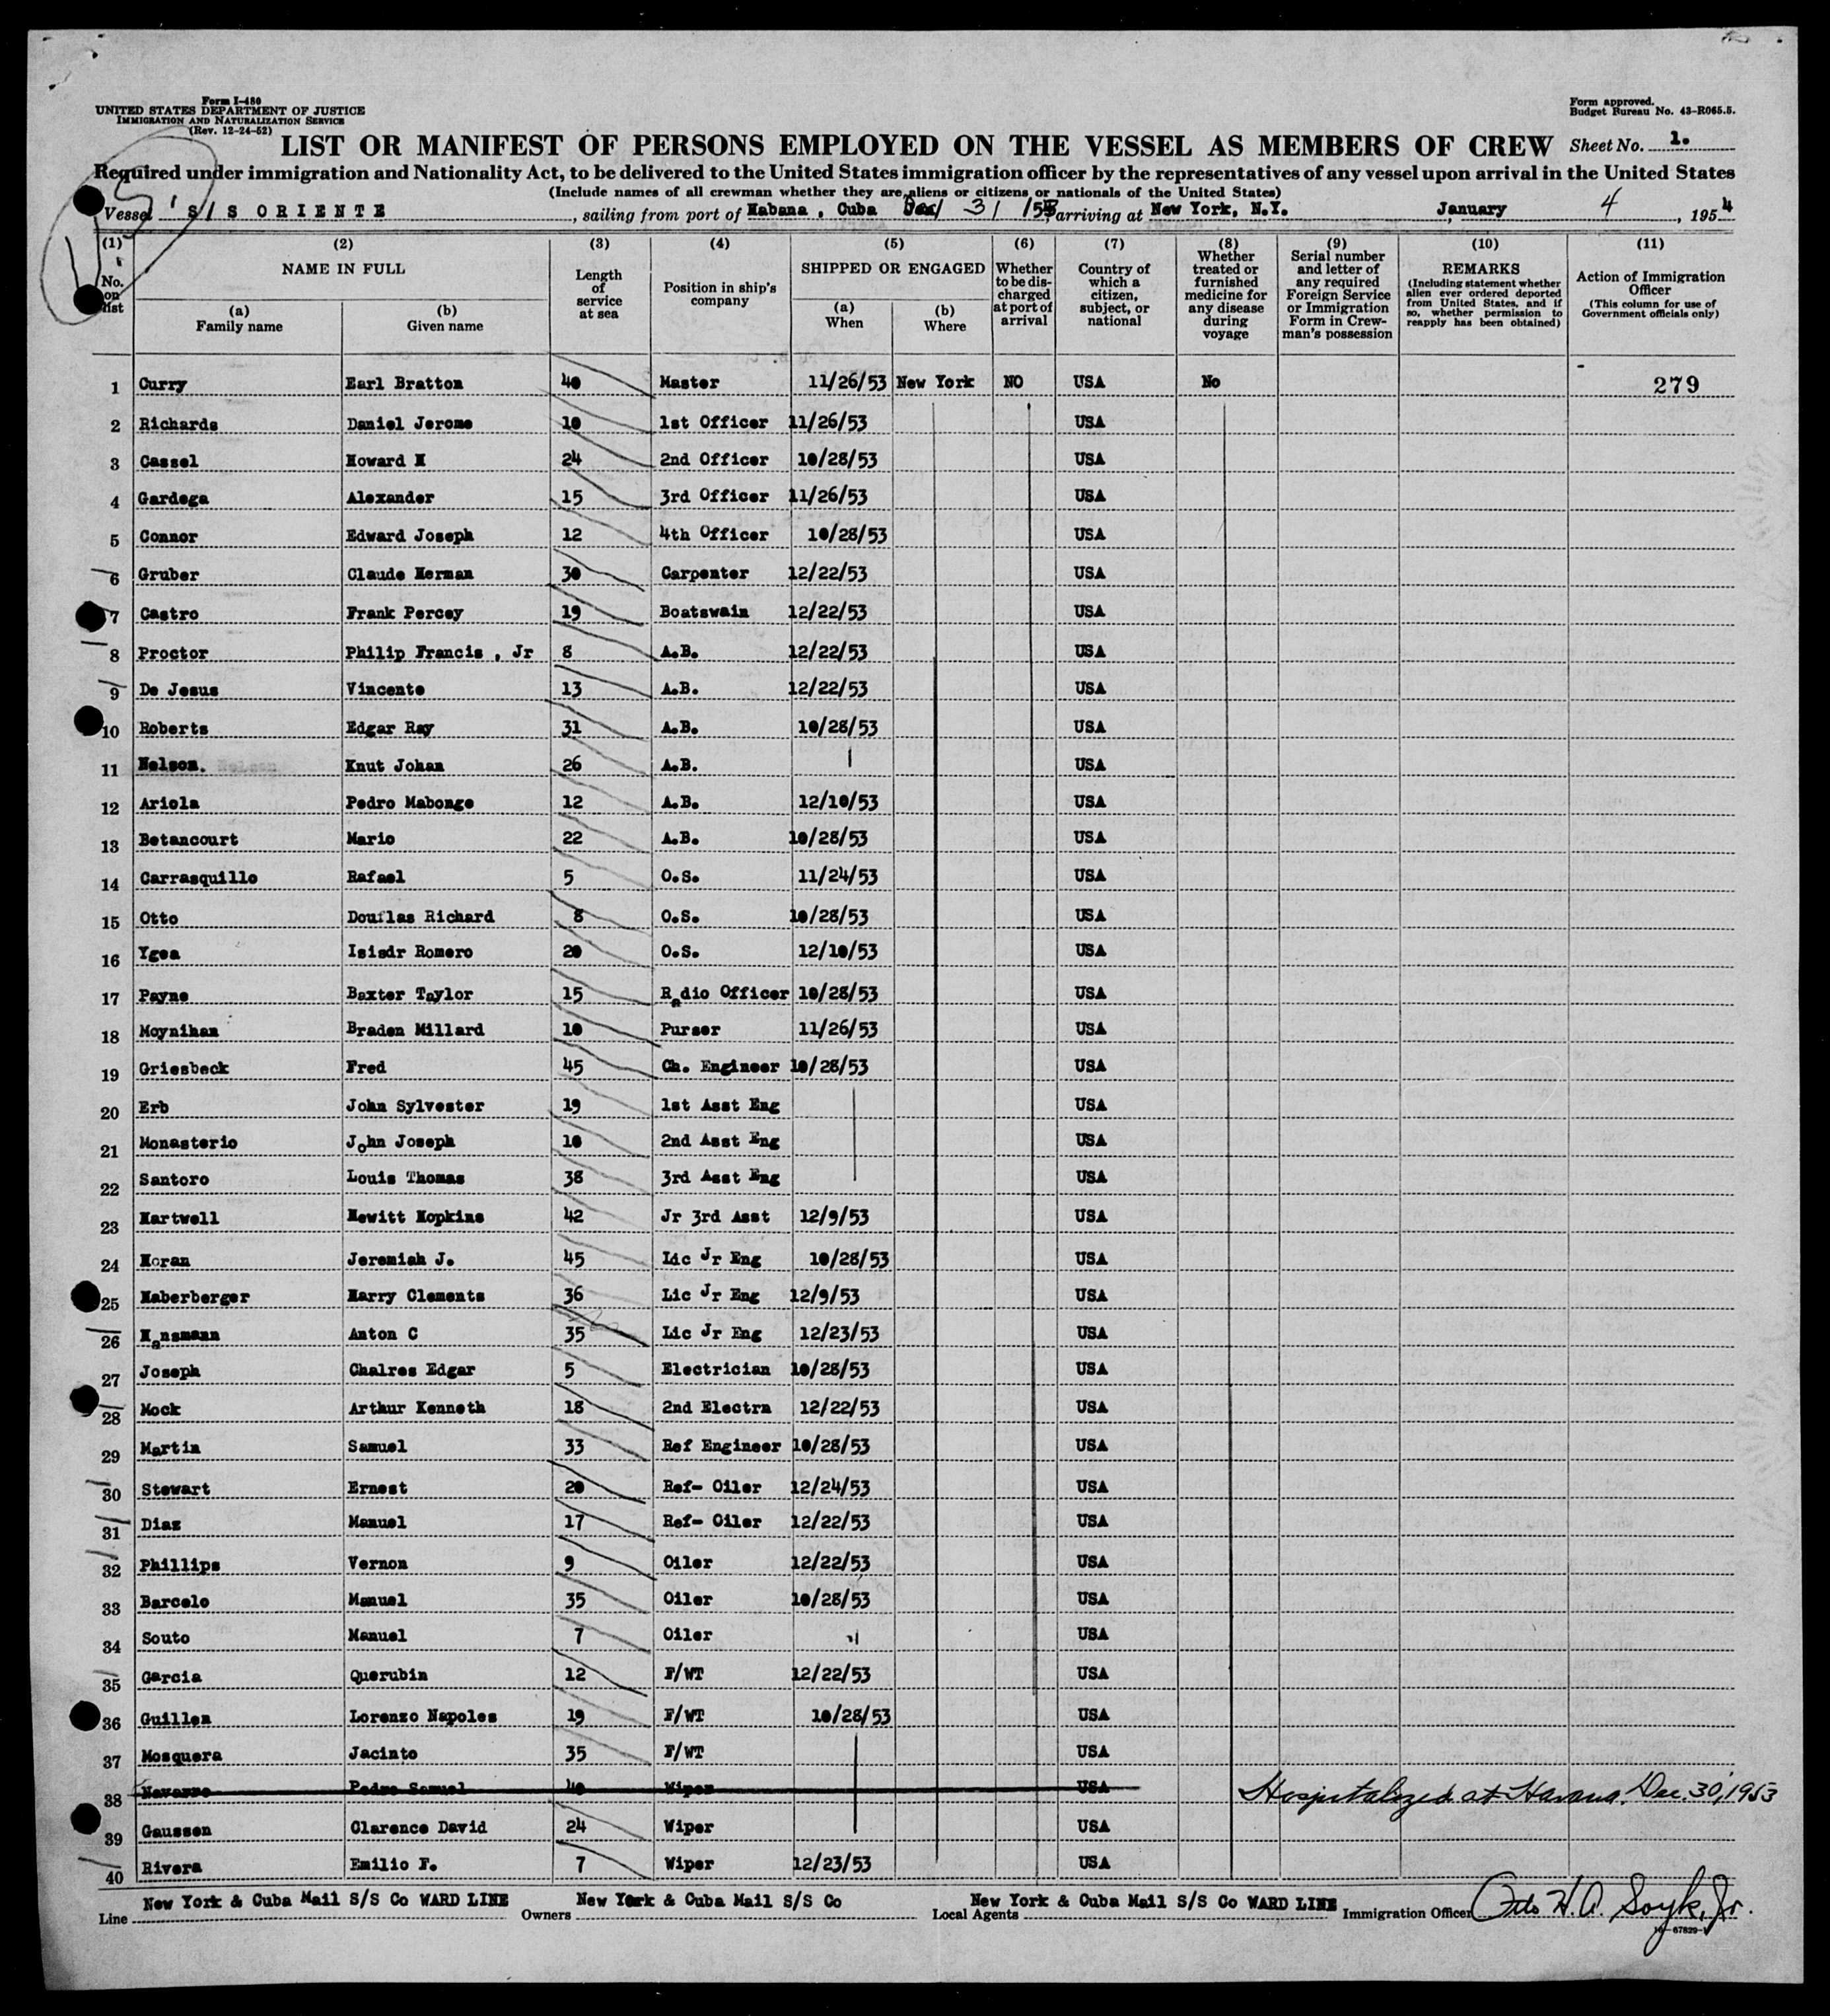 Form I-480
UNITED STATES DEPARTMENT OF JUSTICE
IMMIGRATION AND NATURALIZATION SERVICE
(Rev. 12-24-52)
Form approved.
Budget Bureau No. 43-R065.5.
LIST OR MANIFEST OF PERSONS EMPLOYED ON THE VESSEL AS MEMBERS OF CREW Sheet No. 1.
Required under immigration and Nationality Act, to be delivered to the United States immigration officer by the representatives of any vessel upon arrival in the United States
(Include names of all crewman whether they are aliens or citizens or nationals of the United States)
Vessel S/S ORIENTE, sailing from port of Habana, Cuba Dec/ 31 /53, arriving at New York, N.Y. January 4, 1954
(1) No. on list
(2) NAME IN FULL
(a) Family name
(b) Given name
(3) Length of service at sea
(4) Position in ship's company
(5) SHIPPED OR ENGAGED
(a) When
(b) Where
(6) Whether to be discharged at port of arrival
(7) Country of which a citizen, subject, or national
(8) Whether treated or furnished medicine for any disease during voyage
(9) Serial number and letter of any required Foreign Service or Immigration Form in Crewman's possession
(10) REMARKS (Including statement whether alien ever ordered deported from United States, and if so, whether permission to reapply has been obtained)
(11) Action of Immigration Officer (This column for use of Government officials only)
1 Curry Earl Bratton 40 Master 11/26/53 New York NO USA No 279
2 Richards Daniel Jerome 10 1st Officer 11/26/53 USA
3 Cassel Howard H 24 2nd Officer 10/28/53 USA
4 Gardega Alexander 15 3rd Officer 11/26/53 USA
5 Connor Edward Joseph 12 4th Officer 10/28/53 USA
6 Gruber Claude Herman 30 Carpenter 12/22/53 USA
7 Castro Frank Percey 19 Boatswain 12/22/53 USA
8 Proctor Philip Francis , Jr 8 A.B. 12/22/53 USA
9 De Jesus Vincente 13 A.B. 12/22/53 USA
10 Roberts Edgar Ray 31 A.B. 10/28/53 USA
11 Nelson. Knut Johan 26 A.B. USA
12 Ariola Pedro Mabonge 12 A.B. 12/10/53 USA
13 Betancourt Mario 22 A.B. 10/28/53 USA
14 Carrasquillo Rafael 5 O.S. 11/24/53 USA
15 Otto Douflas Richard 8 O.S. 10/28/53 USA
16 Ygea Isisdr Romero 20 O.S. 12/10/53 USA
17 Payne Baxter Taylor 15 Radio Officer 10/28/53 USA
18 Moynihan Braden Millard 10 Purser 11/26/53 USA
19 Griesbeck Fred 45 Ch. Engineer 10/28/53 USA
20 Erb John Sylvester 19 1st Asst Eng USA
21 Monasterio John Joseph 10 2nd Asst Eng USA
22 Santoro Louis Thomas 38 3rd Asst Eng USA
23 Hartwell Hewitt Hopkins 42 Jr 3rd Asst 12/9/53 USA
24 Horan Jeremiah J. 45 Lic Jr Eng 10/28/53 USA
25 Haberberger Harry Clements 36 Lic Jr Eng 12/9/53 USA
26 Hansmann Anton C 35 Lic Jr Eng 12/23/53 USA
27 Joseph Chalres Edgar 5 Electrician 10/28/53 USA
28 Mock Arthur Kenneth 18 2nd Electrn 12/22/53 USA
29 Martin Samuel 33 Ref Engineer 10/28/53 USA
30 Stewart Ernest 20 Ref- Oiler 12/24/53 USA
31 Diaz Manuel 17 Ref- Oiler 12/22/53 USA
32 Phillips Vernon 9 Oiler 12/22/53 USA
33 Barcelo Manuel 35 Oiler 10/28/53 USA
34 Souto Manuel 7 Oiler USA
35 Garcia Querubin 12 F/WT 12/22/53 USA
36 Guillen Lorenzo Napoles 19 F/WT 10/28/53 USA
37 Mosquera Jacinto 35 F/WT USA
38 Navarro Pedro Samuel 40 Wiper USA Hospitalized at Havana. Dec. 30, 1953
39 Gaussen Clarence David 24 Wiper USA
40 Rivera Emilio F. 7 Wiper 12/23/53 USA
Line New York & Cuba Mail S/S Co WARD LINE Owners New York & Cuba Mail S/S Co Local Agents New York & Cuba Mail S/S Co WARD LINE Immigration Officer Otto H.A. Soyk, Jr.
16—67829-1